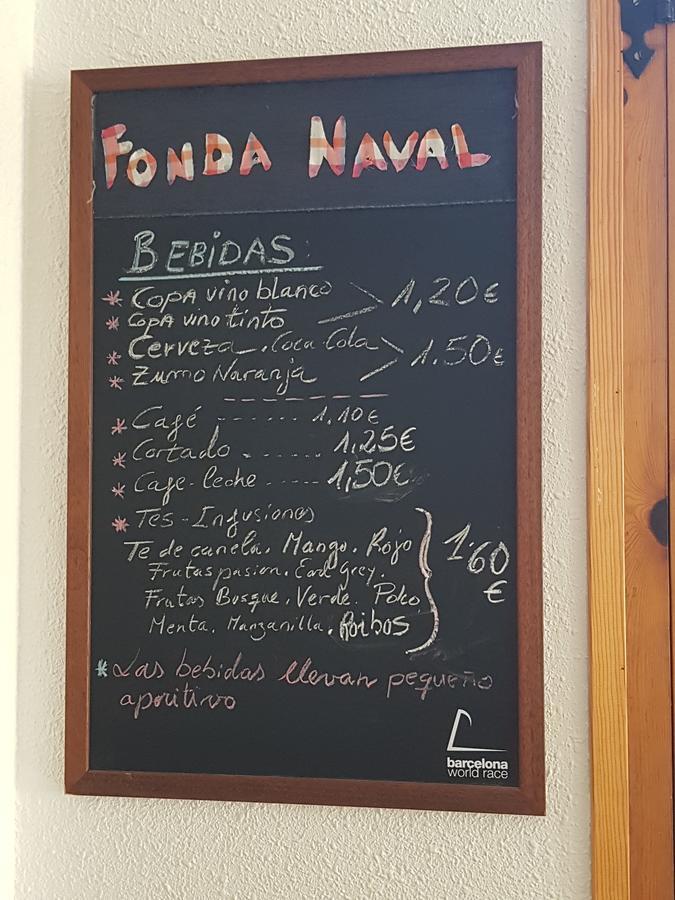 FONDA NAVAL
BEBIDAS:
* Copa vino blanco
* Copa vino tinto
1,20€
* Cerveza, Coca Cola
* Zumo Naranja
1.50€
* Café ------- 1.10€
* Cortado ------ 1,25€
* Cafe-leche ----- 1,50€
* Tes-Infusiones
Te de canela. Mango. Rojo
Frutas pasion. Earl Grey.
Frutas Bosque, Verde. Poleo,
Menta. Manzanilla. Roibos
1'60
€
* Las bebidas llevan pequeño
aperitivo
barcelona
world race